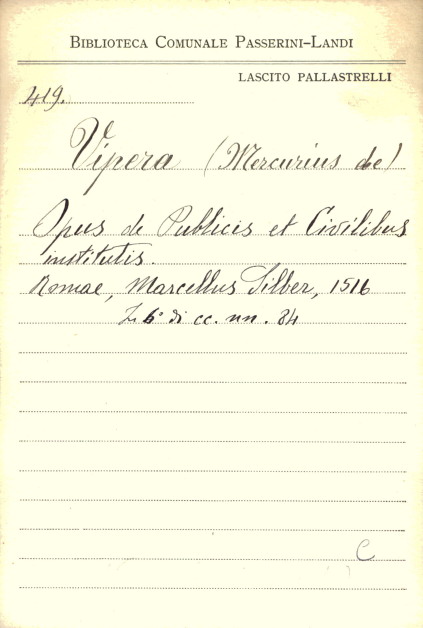 BIBLIOTECA COMUNALE PASSERINI-LANDI
LASCITO PALLASTRELLI
419.
Vipera (Mercurius de)
Opus de Publicis et Civilibus
institutis.
Romae, Marcellus Silber, 1516
di cc. nn. 84
C